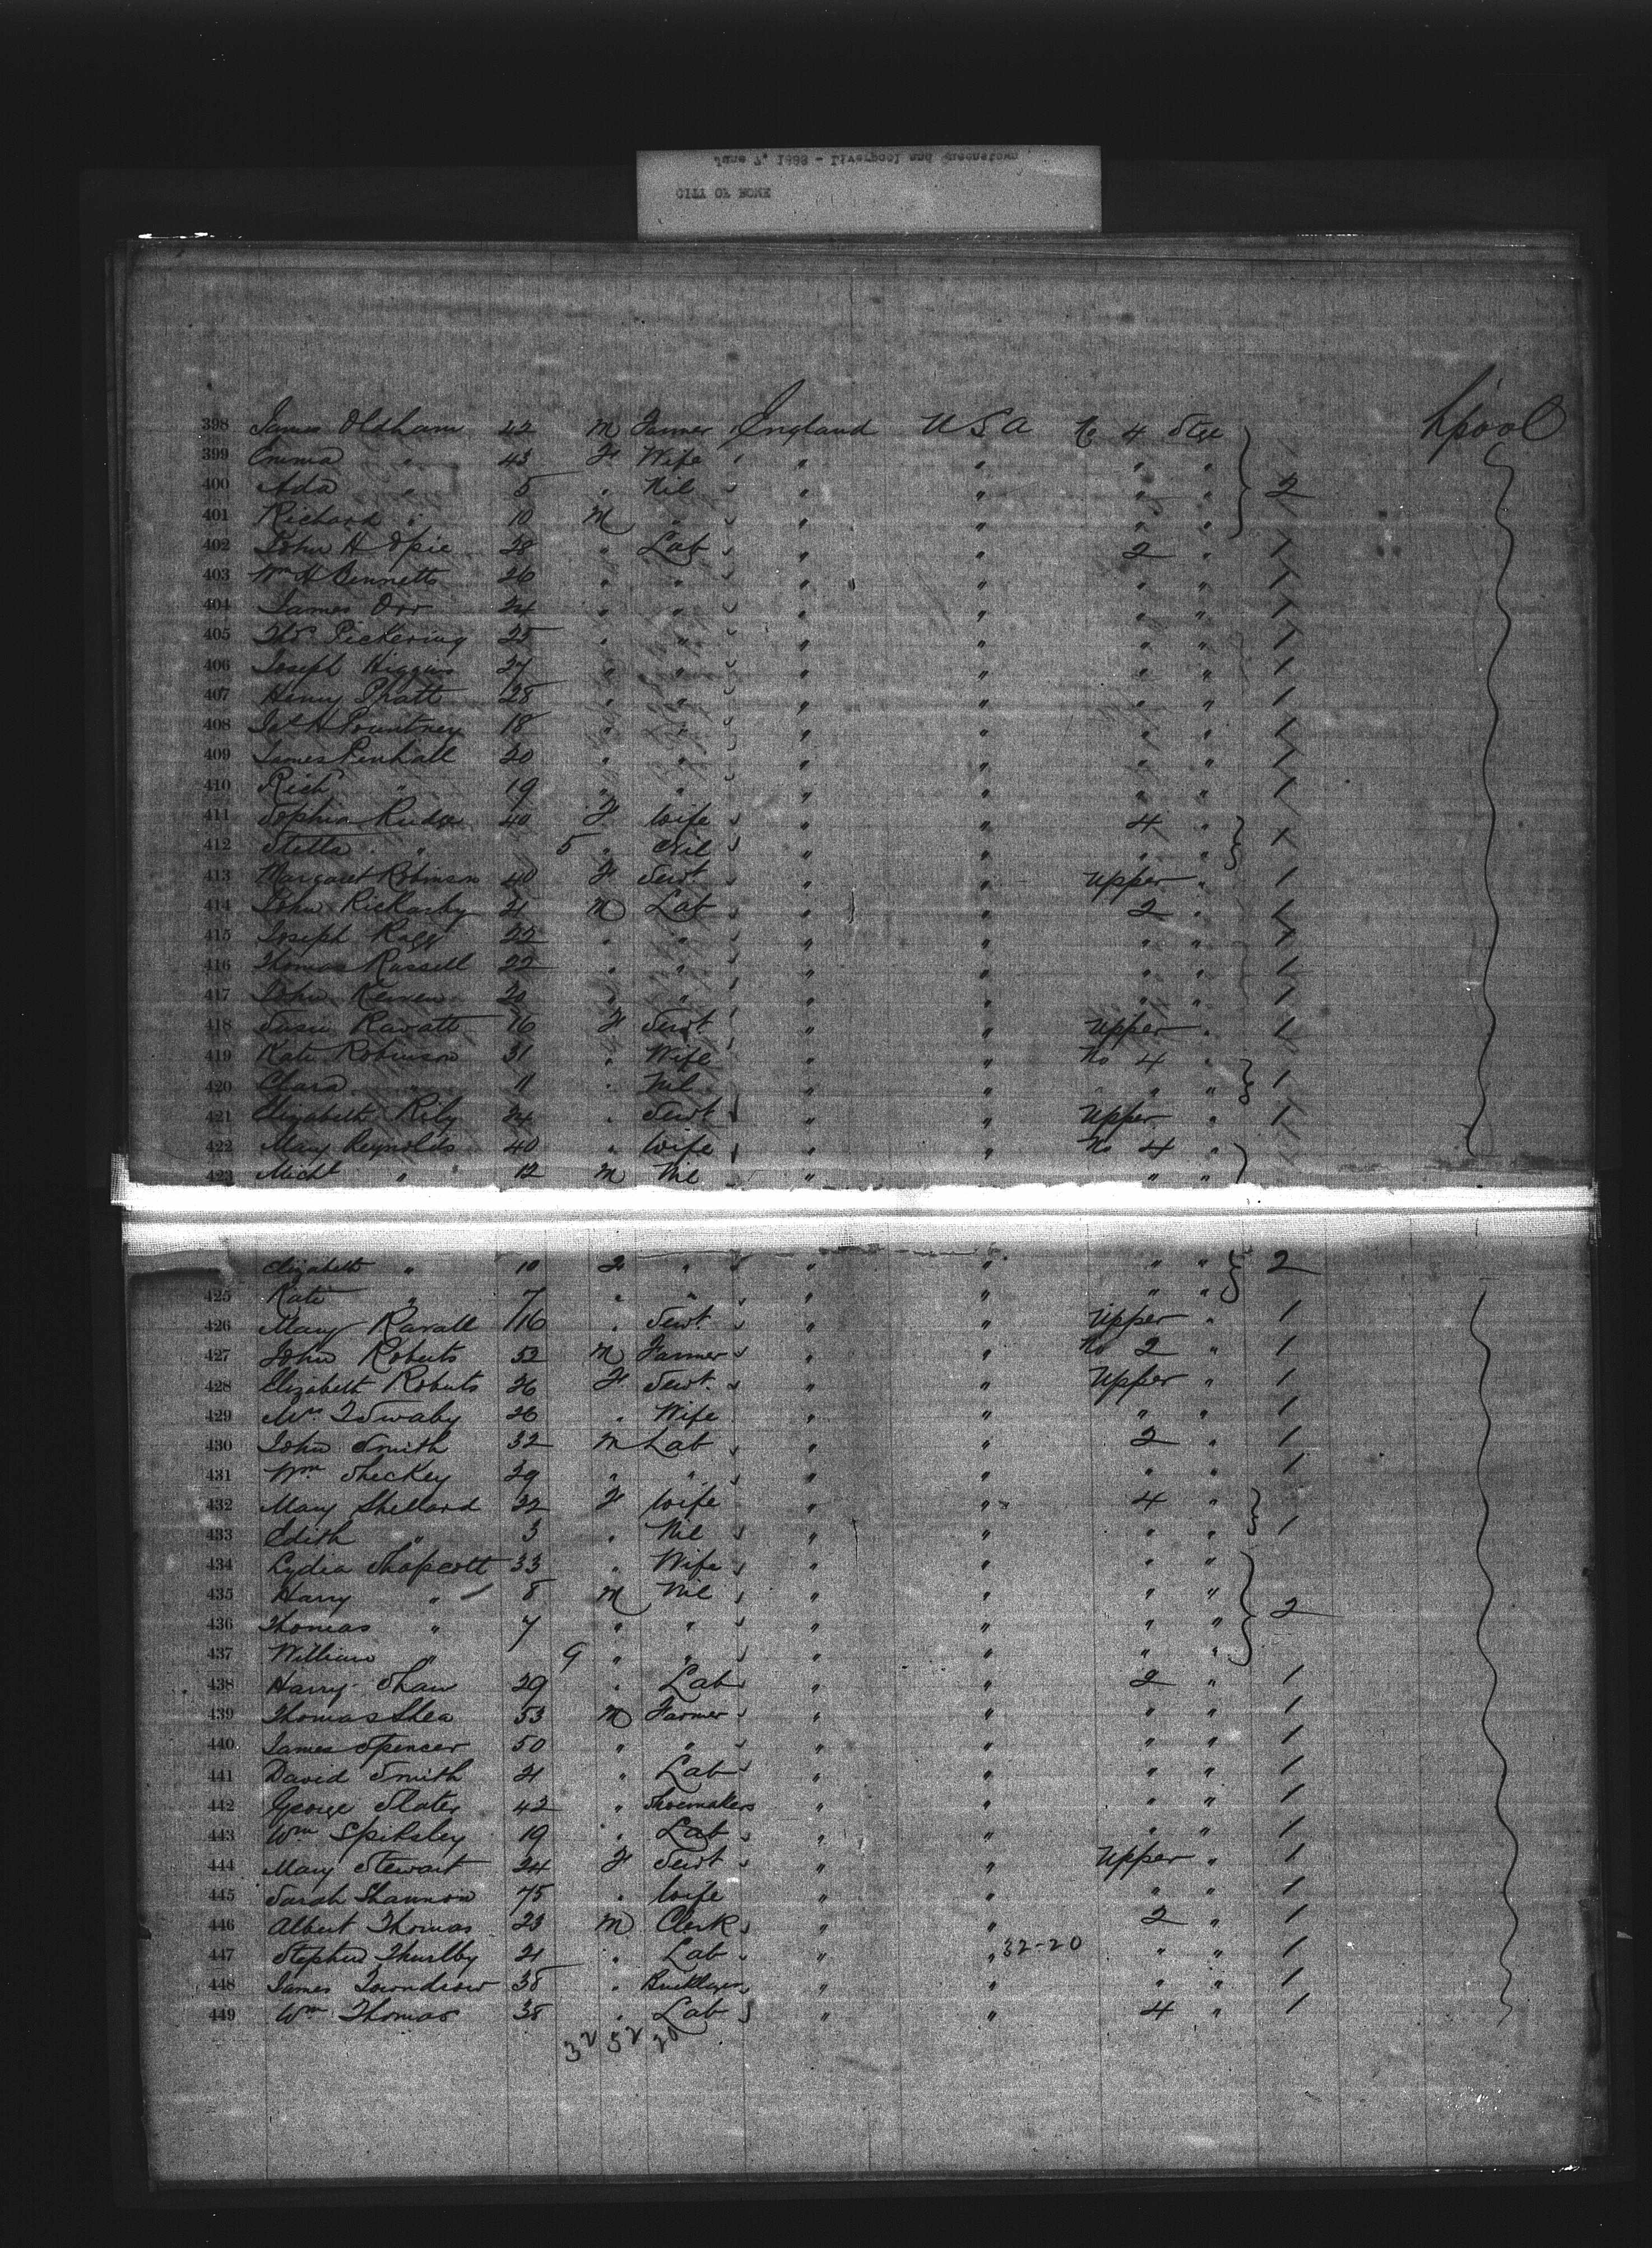 June 7, 1888 - Liverpool and Queenstown
CITY OF ROME
398 James Oldham 22 M Farmer England USA No 4 Stge L'pool
399 Emma " 43 F Wife " " " "
400 Ada " 5 " Nil " " " " 2
401 Richard " 10 M " " " " "
402 John H Opie 28 " Lab " " 2 " 1
403 Wm H Bennetts 26 " " " " " " 1
404 James Orr 24 " " " " " " 1
405 Thos Pickering 25 " " " " " " 1
406 Joseph Higgins 27 " " " " " " 1
407 Henry Pratt 28 " " " " " " 1
408 Jas H Pountney 18 " " " " " " 1
409 James Penhall 20 " " " " " " 1
410 Rich " 19 " " " " " " 1
411 Sophia Rudge 40 F Wife " " 4 "
412 Stella " 5 " Nil " " " " 1
413 Margaret Robinson 40 F Servt " " Upper " 1
414 John Rickarby 21 M Lab " " 2 " 1
415 Joseph Ragg 22 " " " " " " 1
416 Thomas Russell 22 " " " " " " 1
417 John 20 " " " " " " 1
418 Susie Ravatt 16 F Servt " " Upper " 1
419 Kate Robinson 31 " Wife " " No 4 "
420 Clara " 11 " Nil " " " " 1
421 Elizabeth Rily 24 " Servt " " Upper " 1
422 Mary Reynolds 40 " Wife " " No 4 "
423 Michl " 12 M Nil " " "
Elizabeth " 10 F " " " " " 2
425 Kate " 7 " " " " " "
426 Mary Ravall 16 " Servt " " Upper " 1
427 John Roberts 52 M Farmer " " No 2 " 1
428 Elizabeth Roberts 26 F Servt. " " Upper " 1
429 Mrs T Swaby 26 " Wife " " " " 1
430 John Smith 32 M Lab " " 2 " 1
431 Wm Sheckey 29 " " " " " " 1
432 Mary Shellard 32 F Wife " " 4 "
433 Edith " 3 " Nil " " " " 1
434 Lydia Shapcott 33 " Wife " " " "
435 Harry " 8 M Nil " " " "
436 Thomas " 7 " " " " " " 2
437 William " 9 " " " " " "
438 Harry Shaw 29 " Lab " " 2 " 1
439 Thomas Shea 53 M Farmer " " " " 1
440 James Spencer 50 " " " " " " 1
441 David Smith 21 " Lab " " " " 1
442 George Slater 42 " Shoemaker " " " " 1
443 Wm Spiksley 19 " Lab " " " " 1
444 Mary Stewart 24 F Servt " " Upper " 1
445 Sarah Shannon 75 " Wife " " " " 1
446 Albert Thomas 23 M Clerk " " 2 " 1
447 Stephen Thurlby 21 " Lab " " 32-20 " " 1
448 James Towndrow 38 " Bricklayer " " " " 1
449 Wm Thomas 38 " Lab " " 4 " 1
32 52 20